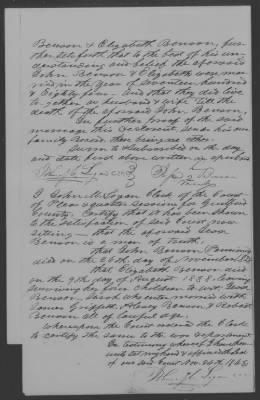 Benson & Elizabeth Benson, fur-
ther sets forth that to the best of his un-
derstanding and belief the aforesaid
John Benson & Elizabeth were mar-
ried in the Year of Seventeen hundred
& Eighty four. And that they did live
together as husband & wife till the
death of the aforesaid John Benson,
In further proof of the said
marriage this declarent sends his own
family Record, there being no other.
Sworn to & subscribed on the day
and state first above written in open court
I John M. Logan Clerk of the Court
of Pleas & quarter sessions for Guilford
County. Certify that it has been shown
to the satisfaction of said Court, now
sitting — that the aforesaid
Benson is a man of truth,
that John Benson, Pensioner
died on the 26th day of November
that Elizabeth Benson died
on the 9th day of August 1838. leaving
surviving her four Children to wit.
Benson. Sarah who inter married with
James Griffith, Henry Benson & Robert
Benson all of lawful age.
Whereupon the Court ordered the Clerk
to certify the same to the War department
In testimony whereof I have here-
unto set my hand & affixed the seal
of our said Court Nov.